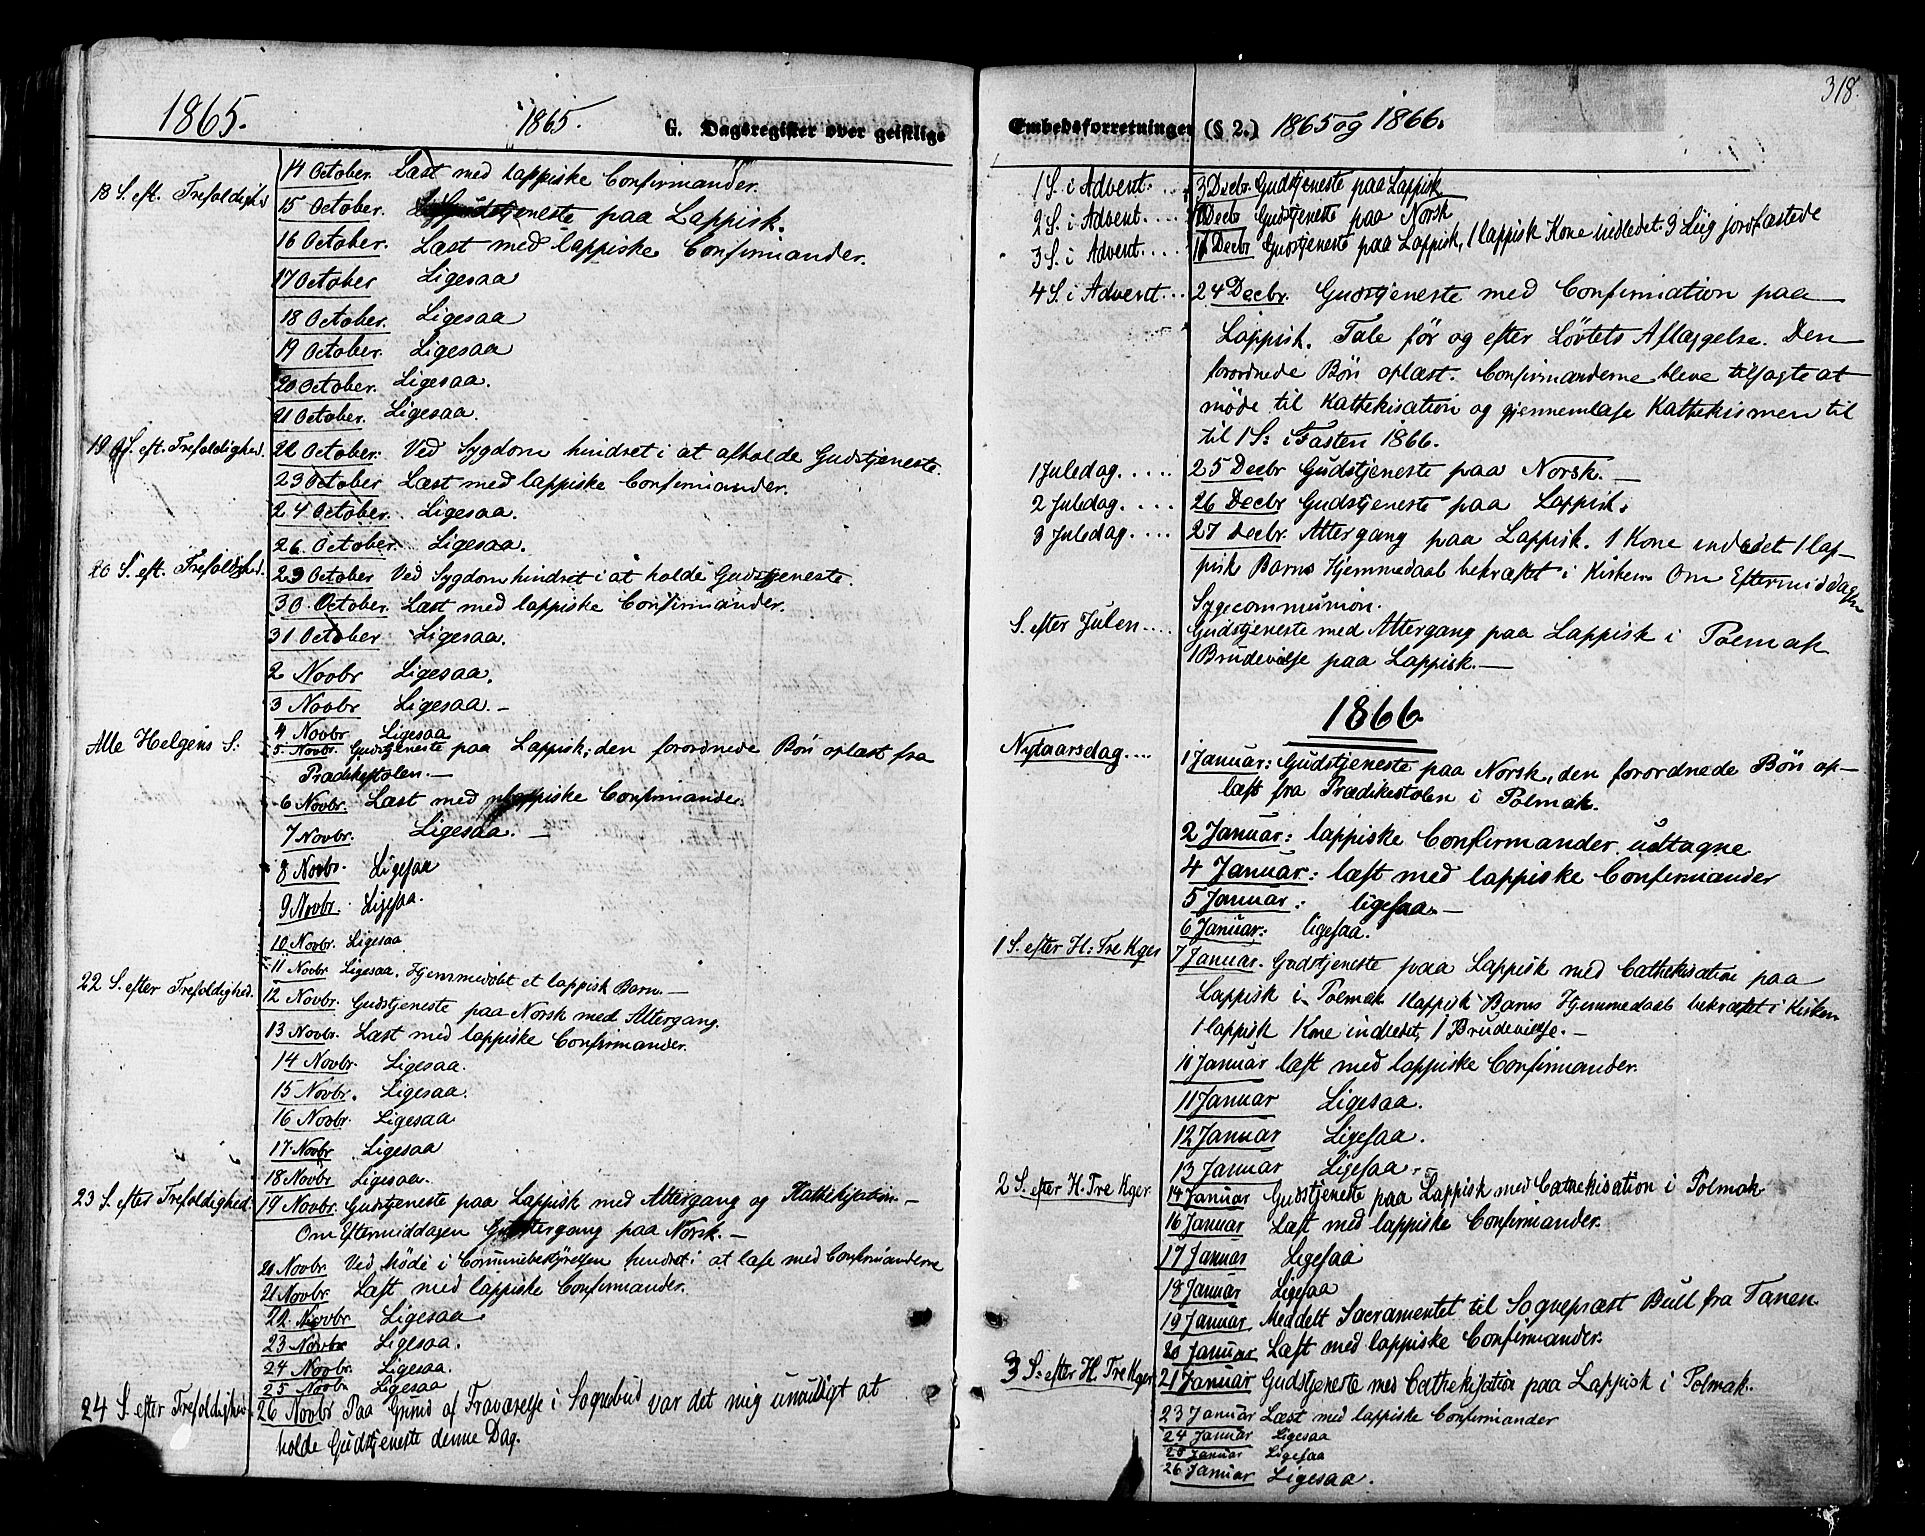 1865.
1865.
G. Dagsregister over geistlige
14 October. Læst med lappiske Confirmander.
18 S. eft. Trefoldighed
15 October. Gudstjeneste paa Lappisk.
16 October. Læst med lappiske Confirmander.
17 October Ligesaa
18 October. Ligesaa
19 October. Ligesaa
20 October. Ligesaa.
21 October. Ligesaa.
19 S. eft. Trefoldighed.
22 October. Ved Sygdom hindret i at afholde Gudstjeneste.
23 October Læst med lappiske Confirmander.
24 October. Ligesaa.
26 October. Ligesaa.
20 S. eft. Trefoldighed.
29 October Ved Sygdom hindret i at holde Gudstjeneste.
30 October. Læst med lappiske Confirmander.
31 October Ligesaa.
2 Novbr Ligesaa.
3 Novbr Ligesaa. –
4 Novbr Ligesaa
Alle Helgens S:
5. Novbr. Gudstjeneste paa Lappisk; den forordnede Bön oplæst fra
Prædikestolen. —
6 Novbr. Læst med lappiske Confirmander.
7 Novbr. Ligesaa. —
8 Novbr. Ligesaa
9 Novbr. Ligesaa.
10 Novbr. Ligesaa.
11 Novbr Ligesaa. Hjemmedöbt et lappisk Barn. —
22 S. efter Trefoldighed.
12 Novbr. Gudstjeneste paa Norsk med Altergang.
13 Novbr. Læst med lappiske Confirmander.
14 Novbr. Ligesaa.
15 Novbr. Ligesaa.
16 Novbr. Ligesaa
17. Novbr Ligesaa
18 Novbr Ligesaa.
23 S. efter Trefoldighed.
19 Novbr. Gudstjeneste paa Lappisk med Altergang og Kathekisation. —
Om Eftermiddagen Altergang paa Norsk. —
20 Novbr. Ved Möde i Communebestyrelsen hindret i at læse med Confirmanderne
21 Novbr. Læst med lappiske Confirmander.
22 Novbr Ligesaa
23 Novbr Ligesaa.
24 Novbr. Ligesaa.
25 Novbr Ligesaa
24 S. efter Trefoldighed.
26 Novbr Paa Grund af Fraværelse i Sognebud var det mig umuligt at
holde Gudstjeneste denne Dag.
318.
Embedsforretninger (§ 2.) 1865 og 1866.
1 S. i Advent. . . 3 Decbr. Gudstjeneste paa Lappisk
2 S. i Advent. . . . 10 Decbr Gudstjeneste paa Norsk
3 S. i Advent. . . . Decbr Gudstjeneste paa Lappisk, 1 lappisk Kone indledet. 3 Liig jordfæstede
4 S. i Advent. . . 24 Decbr. Gudstjeneste med Confirmation paa
Lappisk. Tale før og efter Løvtets Aflæggelse. Den
forordnede Bön oplæst. Confirmanderne bleve tilsagte at
møde til Kathekisation og gjennemlæse Kathekismen til
til 1 S: i Fasten 1866.
1 Juledag. . . . . 25 Decbr Gudstjeneste paa Norsk. —
2 Juledag. . . . . 26 Decbr Gudstjeneste paa Lappisk.
3 Juledag. . . . 27 Decbr. Altergang paa Lappisk. 1 Kone indledet 1 lap-
pisk Barns Hjemmedaab bekræftet i Kirken. Om Eftermiddagen
Sygecommunion.
S. efter Julen. . . . Gudstjeneste med Altergang paa Lappisk i Polmak
1 Brudevielse paa Lappisk. —
1866.
Nytaarsdag. . . . 1 Januar: Gudstjeneste paa Norsk, den forordnede Bön op-
læst fra Prædikestolen i Polmak.
2 Januar: lappiske Confirmander udtagne
4 Januar: læst med lappiske Confirmander
5 Januar: ligesaa. —
6 Januar: ligesaa.
1 S. efter H: Tre Kger 7 Januar. Gudstjeneste paa Lappisk med Cathekisation paa
Lappisk i Polmak 1 lappisk Barns Hjemmedaab bekræftet i Kirken
1 lappisk Kone indledet, 1 Brudevielse. —
10 Januar læst med lappiske Confirmander.
11 Januar Ligesaa.
12 Januar Ligesaa.
13 Januar Ligesaa. –
2 S. efter H. Tre Kger 14 Januar Gudstjeneste paa Lappisk med Cathekisation i Polmak
16 Januar Læst med lappiske Confirmander.
17 Januar Ligesaa
18 Januar Ligesaa
19 Januar Meddelt Sacramentet til Sognepræst Bull fra Tanen
20 Januar Læst med lappiske Confirmander.
3 S. efter H. Tre Kger 21 Januar Gudstjeneste med Cathekisation paa Lappisk i Polmak.
23 Januar Læst med lappiske Confirmander
24 Januar Ligesaa
25 Januar Ligesaa
26 Januar Ligesaa.